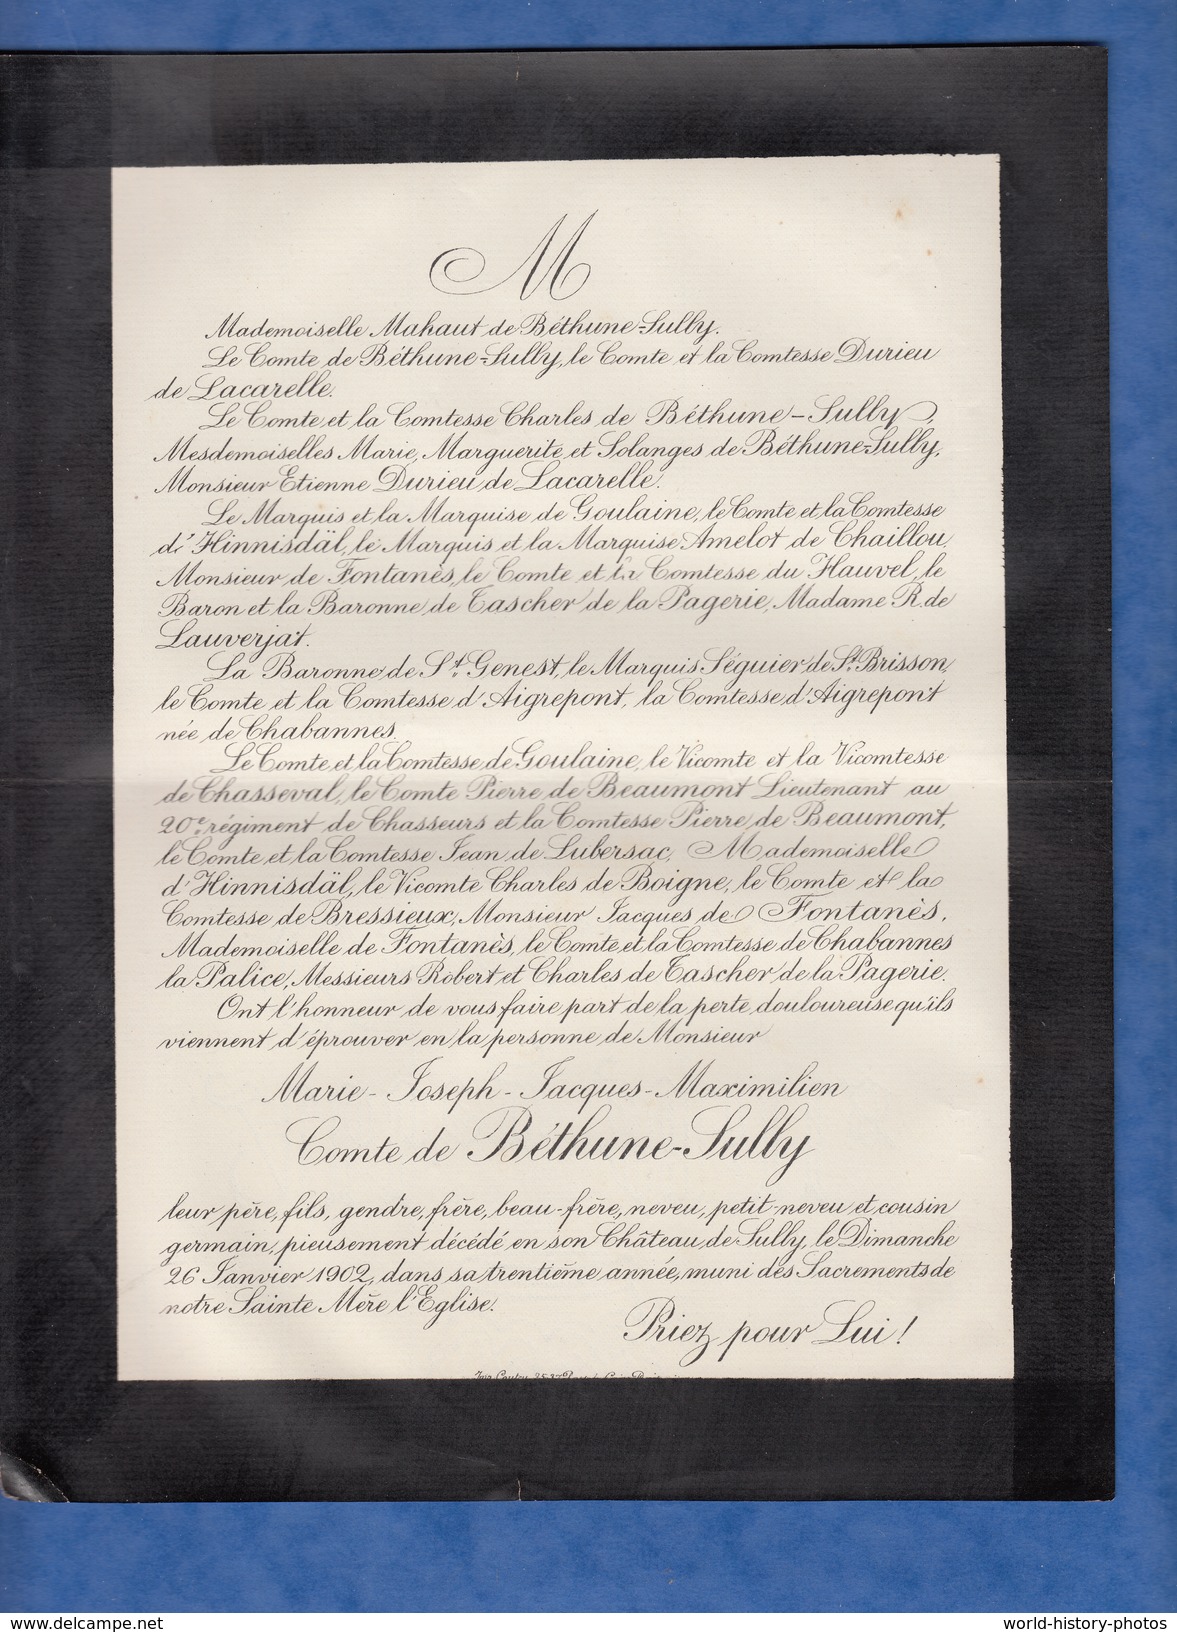 M
Mademoiselle Mahaut de Béthune-Sully.
Le Comte de Béthune-Sully, le Comte et la Comtesse Durieu
de Lacarelle.
Le Comte et la Comtesse Charles de Béthune-Sully,
Mesdemoiselles Marie, Marguerite et Solanges de Béthune-Sully,
Monsieur Etienne Durieu de Lacarelle.
Le Marquis et la Marquise de Goulaine, le Comte et la Comtesse
d'Hinnisdäl, le Marquis et la Marquise Amelot de Chaillou,
Monsieur de Fontanès, le Comte et la Comtesse du Hauvel, le
Baron et la Baronne de Tascher de la Pagerie, Madame R. de
Lauverjat.
La Baronne de St. Genest, le Marquis Séguier de St. Brisson,
le Comte et la Comtesse d'Aigrepont, la Comtesse d'Aigrepont
née de Chabannes.
Le Comte et la Comtesse de Goulaine, le Vicomte et la Vicomtesse
de Chasseval, le Comte Pierre de Beaumont Lieutenant au
20e. régiment de Chasseurs et la Comtesse Pierre de Beaumont,
le Comte et la Comtesse Jean de Lubersac, Mademoiselle
d'Hinnisdäl, le Vicomte Charles de Boigne, le Comte et la
Comtesse de Bressieux, Monsieur Jacques de Fontanès,
Mademoiselle de Fontanès, le Comte et la Comtesse de Chabannes
la Palice, Messieurs Robert et Charles de Tascher de la Pagerie.
Ont l'honneur de vous faire part de la perte douloureuse qu'ils
viennent d'éprouver en la personne de Monsieur
Marie-Joseph-Jacques-Maximilien
Comte de Béthune-Sully
leur père, fils, gendre, frère, beau-frère, neveu, petit-neveu et cousin
germain, pieusement décédé en son Château de Sully, le Dimanche
26 Janvier 1902, dans sa trentième année, muni des Sacrements de
notre Sainte Mère l'Eglise.
Priez pour Lui!
www.delcampe.net
world-history-photos